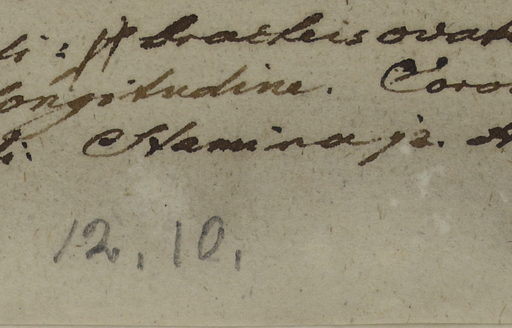 bracteis ovat
longitudine. Coro
Stamina
12. 10.